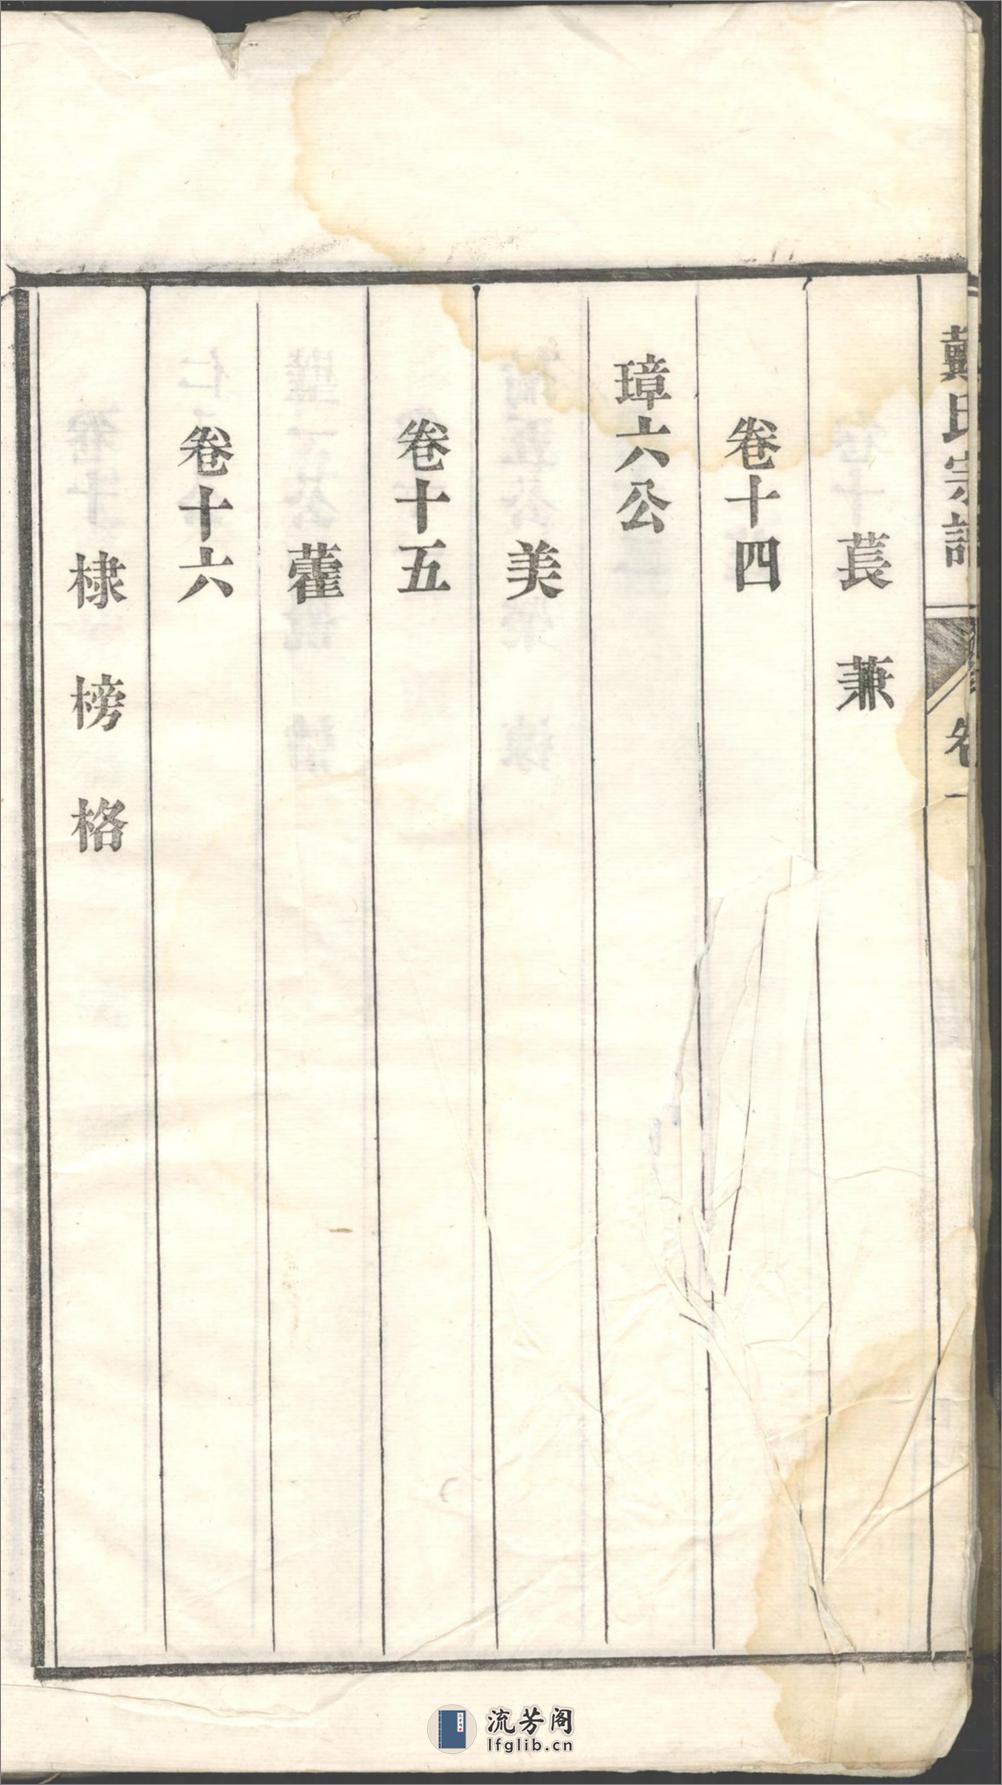 戴氏宗譜 卷一
萇 蒹
卷十四
璋六公
美
卷十五
藿
卷十六
棣 榜 格
流芳阁
lfglib.cn